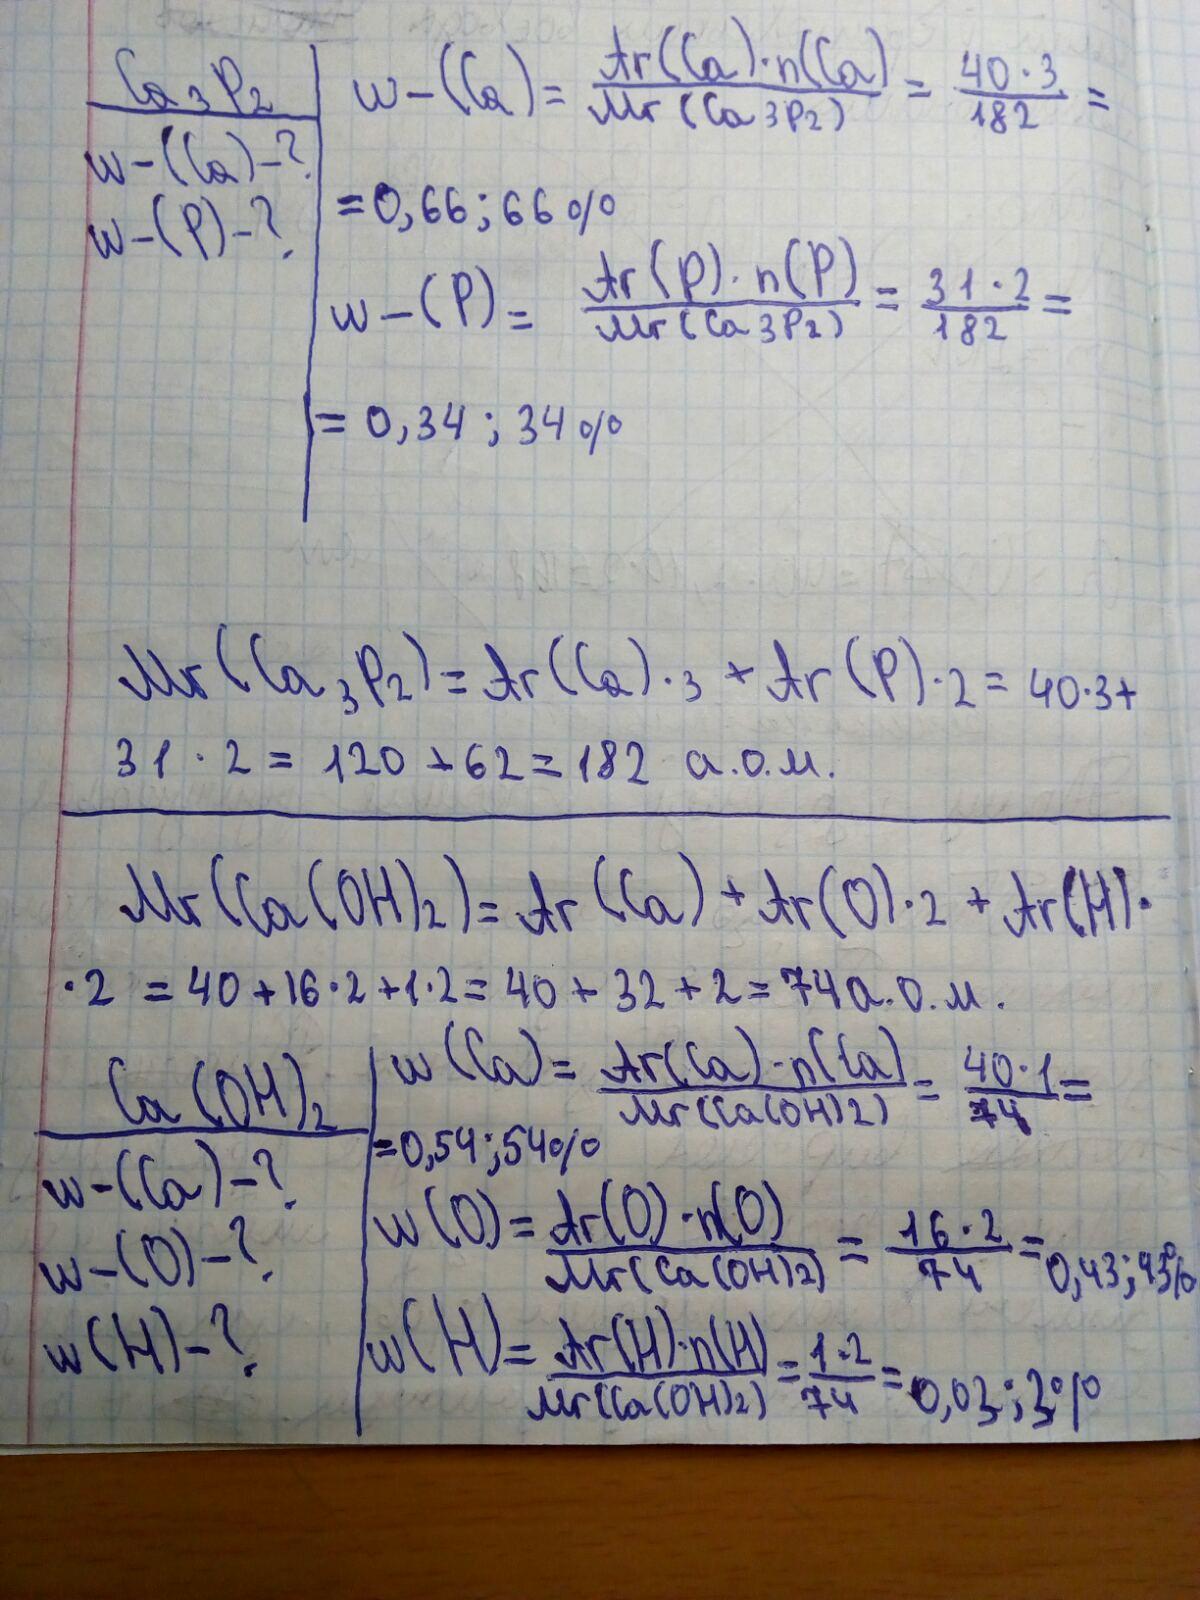 Ca₃P₂
w-(Ca)-?
w-(P)-?
w-(Ca) = Ar(Ca)·n(Ca) / Mr(Ca₃P₂) = 40·3 / 182 =
= 0,66; 66%
w-(P) = Ar(P)·n(P) / Mr(Ca₃P₂) = 31·2 / 182 =
= 0,34; 34%
Mr(Ca₃P₂) = Ar(Ca)·3 + Ar(P)·2 = 40·3+
31·2 = 120+62 = 182 а.о.м.
Mr(Ca(OH)₂) = Ar(Ca) + Ar(O)·2 + Ar(H)·
·2 = 40+16·2+1·2 = 40+32+2 = 74 а.о.м.
Ca(OH)₂
w-(Ca)-?
w-(O)-?
w(H)-?
w(Ca) = Ar(Ca)·n(Ca) / Mr(Ca(OH)2) = 40·1 / 74 =
= 0,54; 54%
w(O) = Ar(O)·n(O) / Mr(Ca(OH)2) = 16·2 / 74 = 0,43; 43%
w(H) = Ar(H)·n(H) / Mr(Ca(OH)₂) = 1·2 / 74 = 0,03; 3%